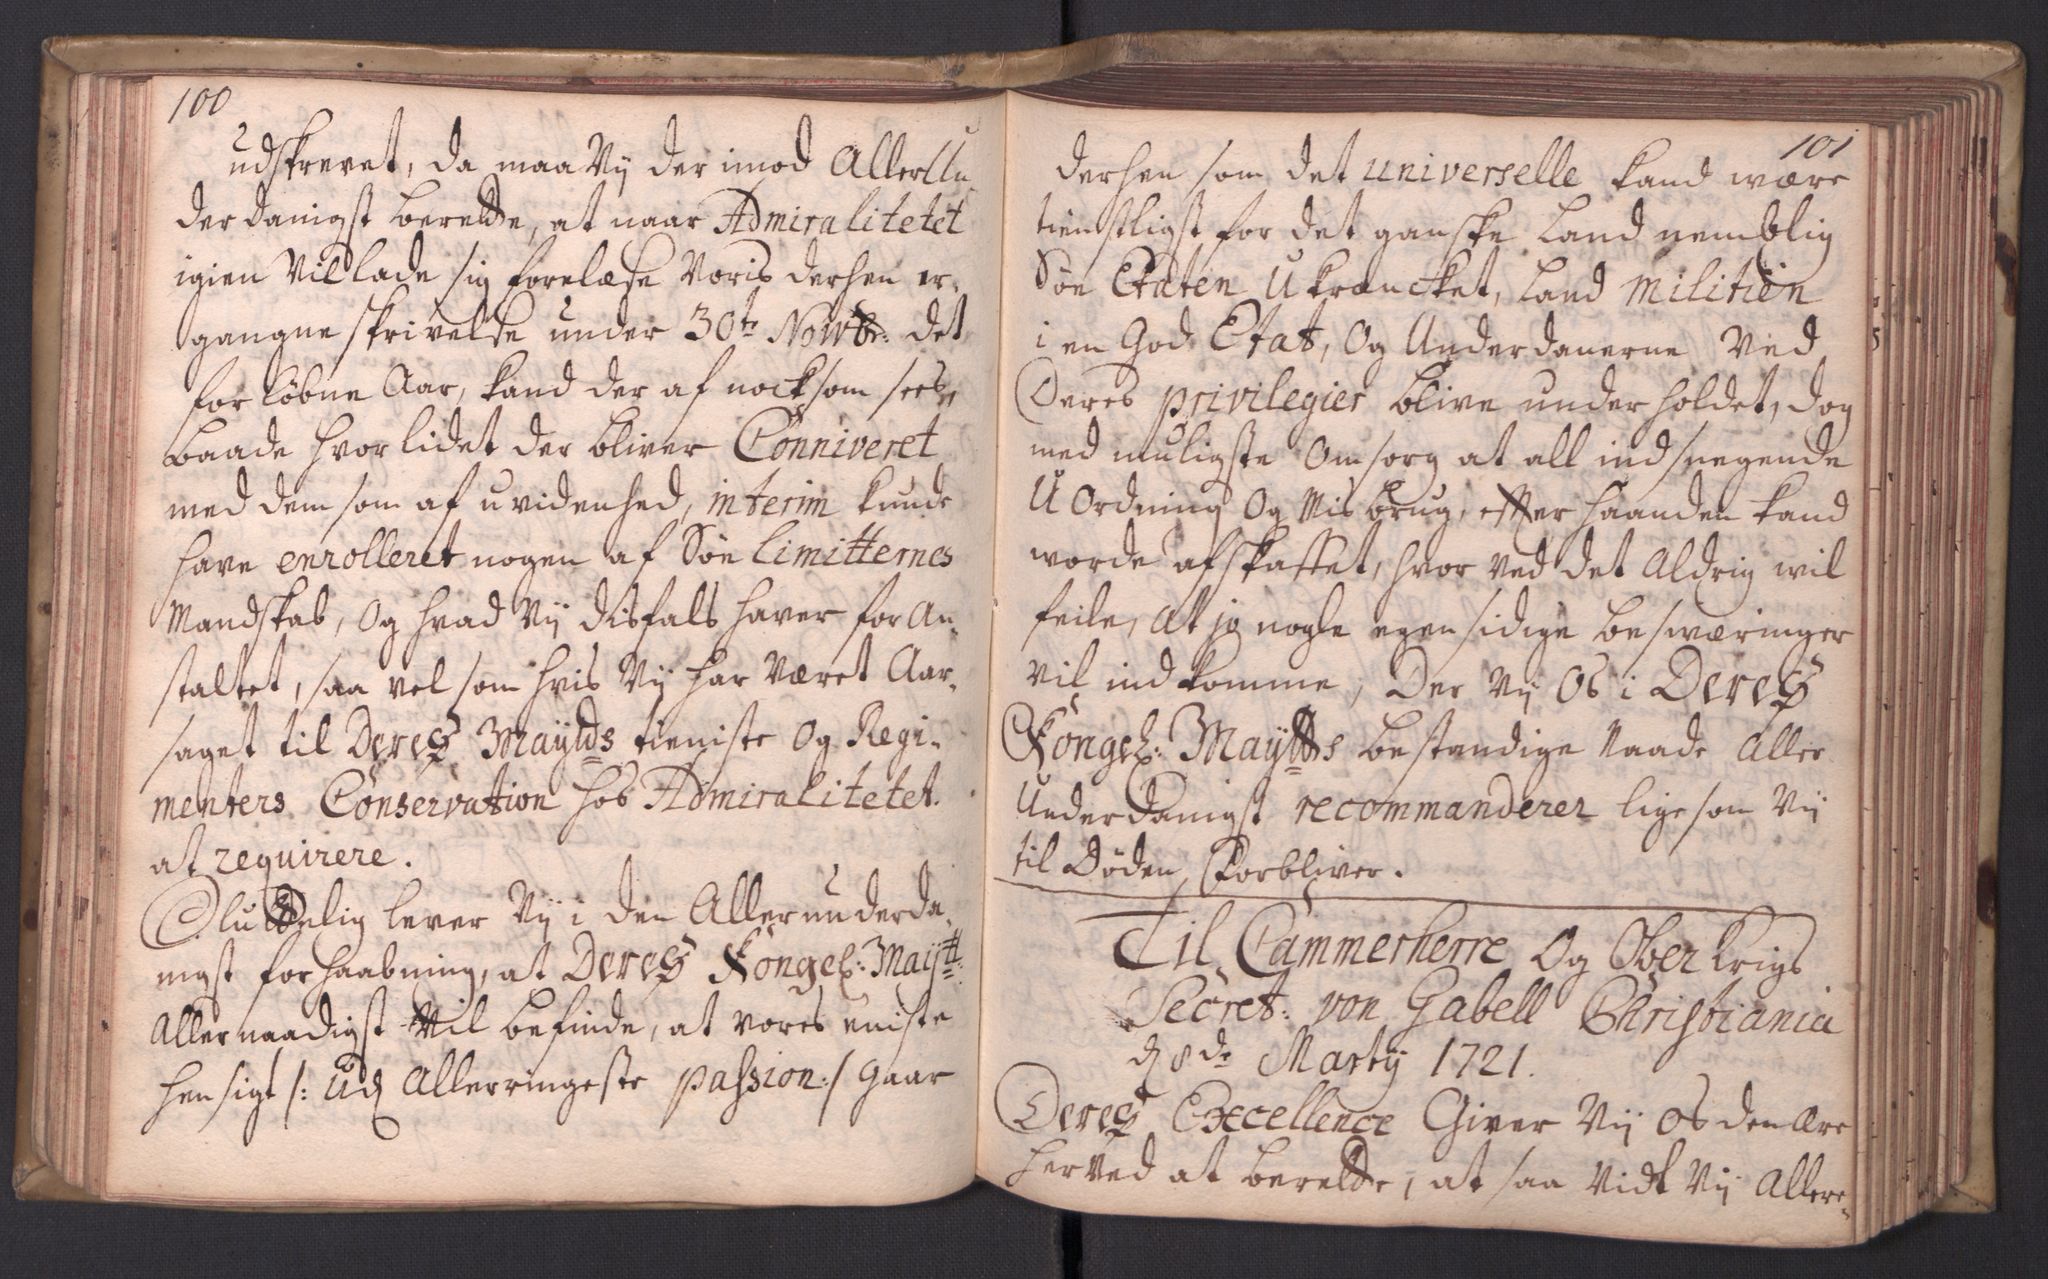 100
udskrevet, da maa Vij der imod AllerUn
derdanigst berette, at naar Admiralitetet
igien Vil lade sig forelæse Voris derhen er-
gangne skrivelse under 30te Novbr: det
forløbne Aar, kand der af nocksom sees,
baade hvor lidet der bliver Conniveret
med dem som af uvidenhed, interim kunde
have enrolleret nogen af Søe Limitternes
Mandskab, Og hvad Vij disfals haver for An-
staltet, saa vel som hvis Vij har Været Aar-
saget til Deres Maytts tieniste Og Regi-
menters Conservation hos Admiralitetet
at requirere.
Sluttelig lever Vij i den Allerunderda-
nigst forhaabning, at Deres Kongel: Maytt:
Allernaadigst Vil befinde, at vores eniste
hensigt /: Ud Allerringeste passion :/ gaar
101
derhen som det universelle kand være
tienstligst for det ganske Land nemblig
Søe Etaten Ukræncket, Land Militien
i en God Etat, Og Underdanerne Ved
Deres privilegier blive underholdet, dog
med muligste Omsorg at all indsnegende
UOrdning Og Misbrug, efter haanden kand
worde afskaffet, hvor ved det Aldrig wil
feile, At jo nogle egensidige besværinger
vil indkomme, Der Vij Os i Deres
Kongel: Maytts bestandige Naade Aller
Underdanigst recommanderer ligesom Vij
til Døden, Forbliver.
Til Cammerherre Og Ober Krigs
Secret: von Gabell Christiania
d 8de Martij 1721.
Deres Excellence Giver Vij Os den Ære
herved at berette, at saa Vidt Vij Allere-